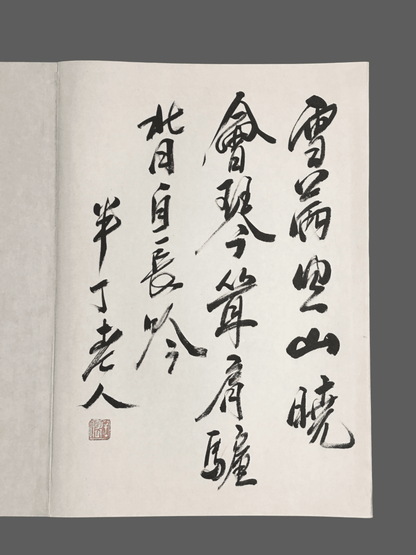 雪山曉
會琴聳肩驢
背自長吟
半丁老人